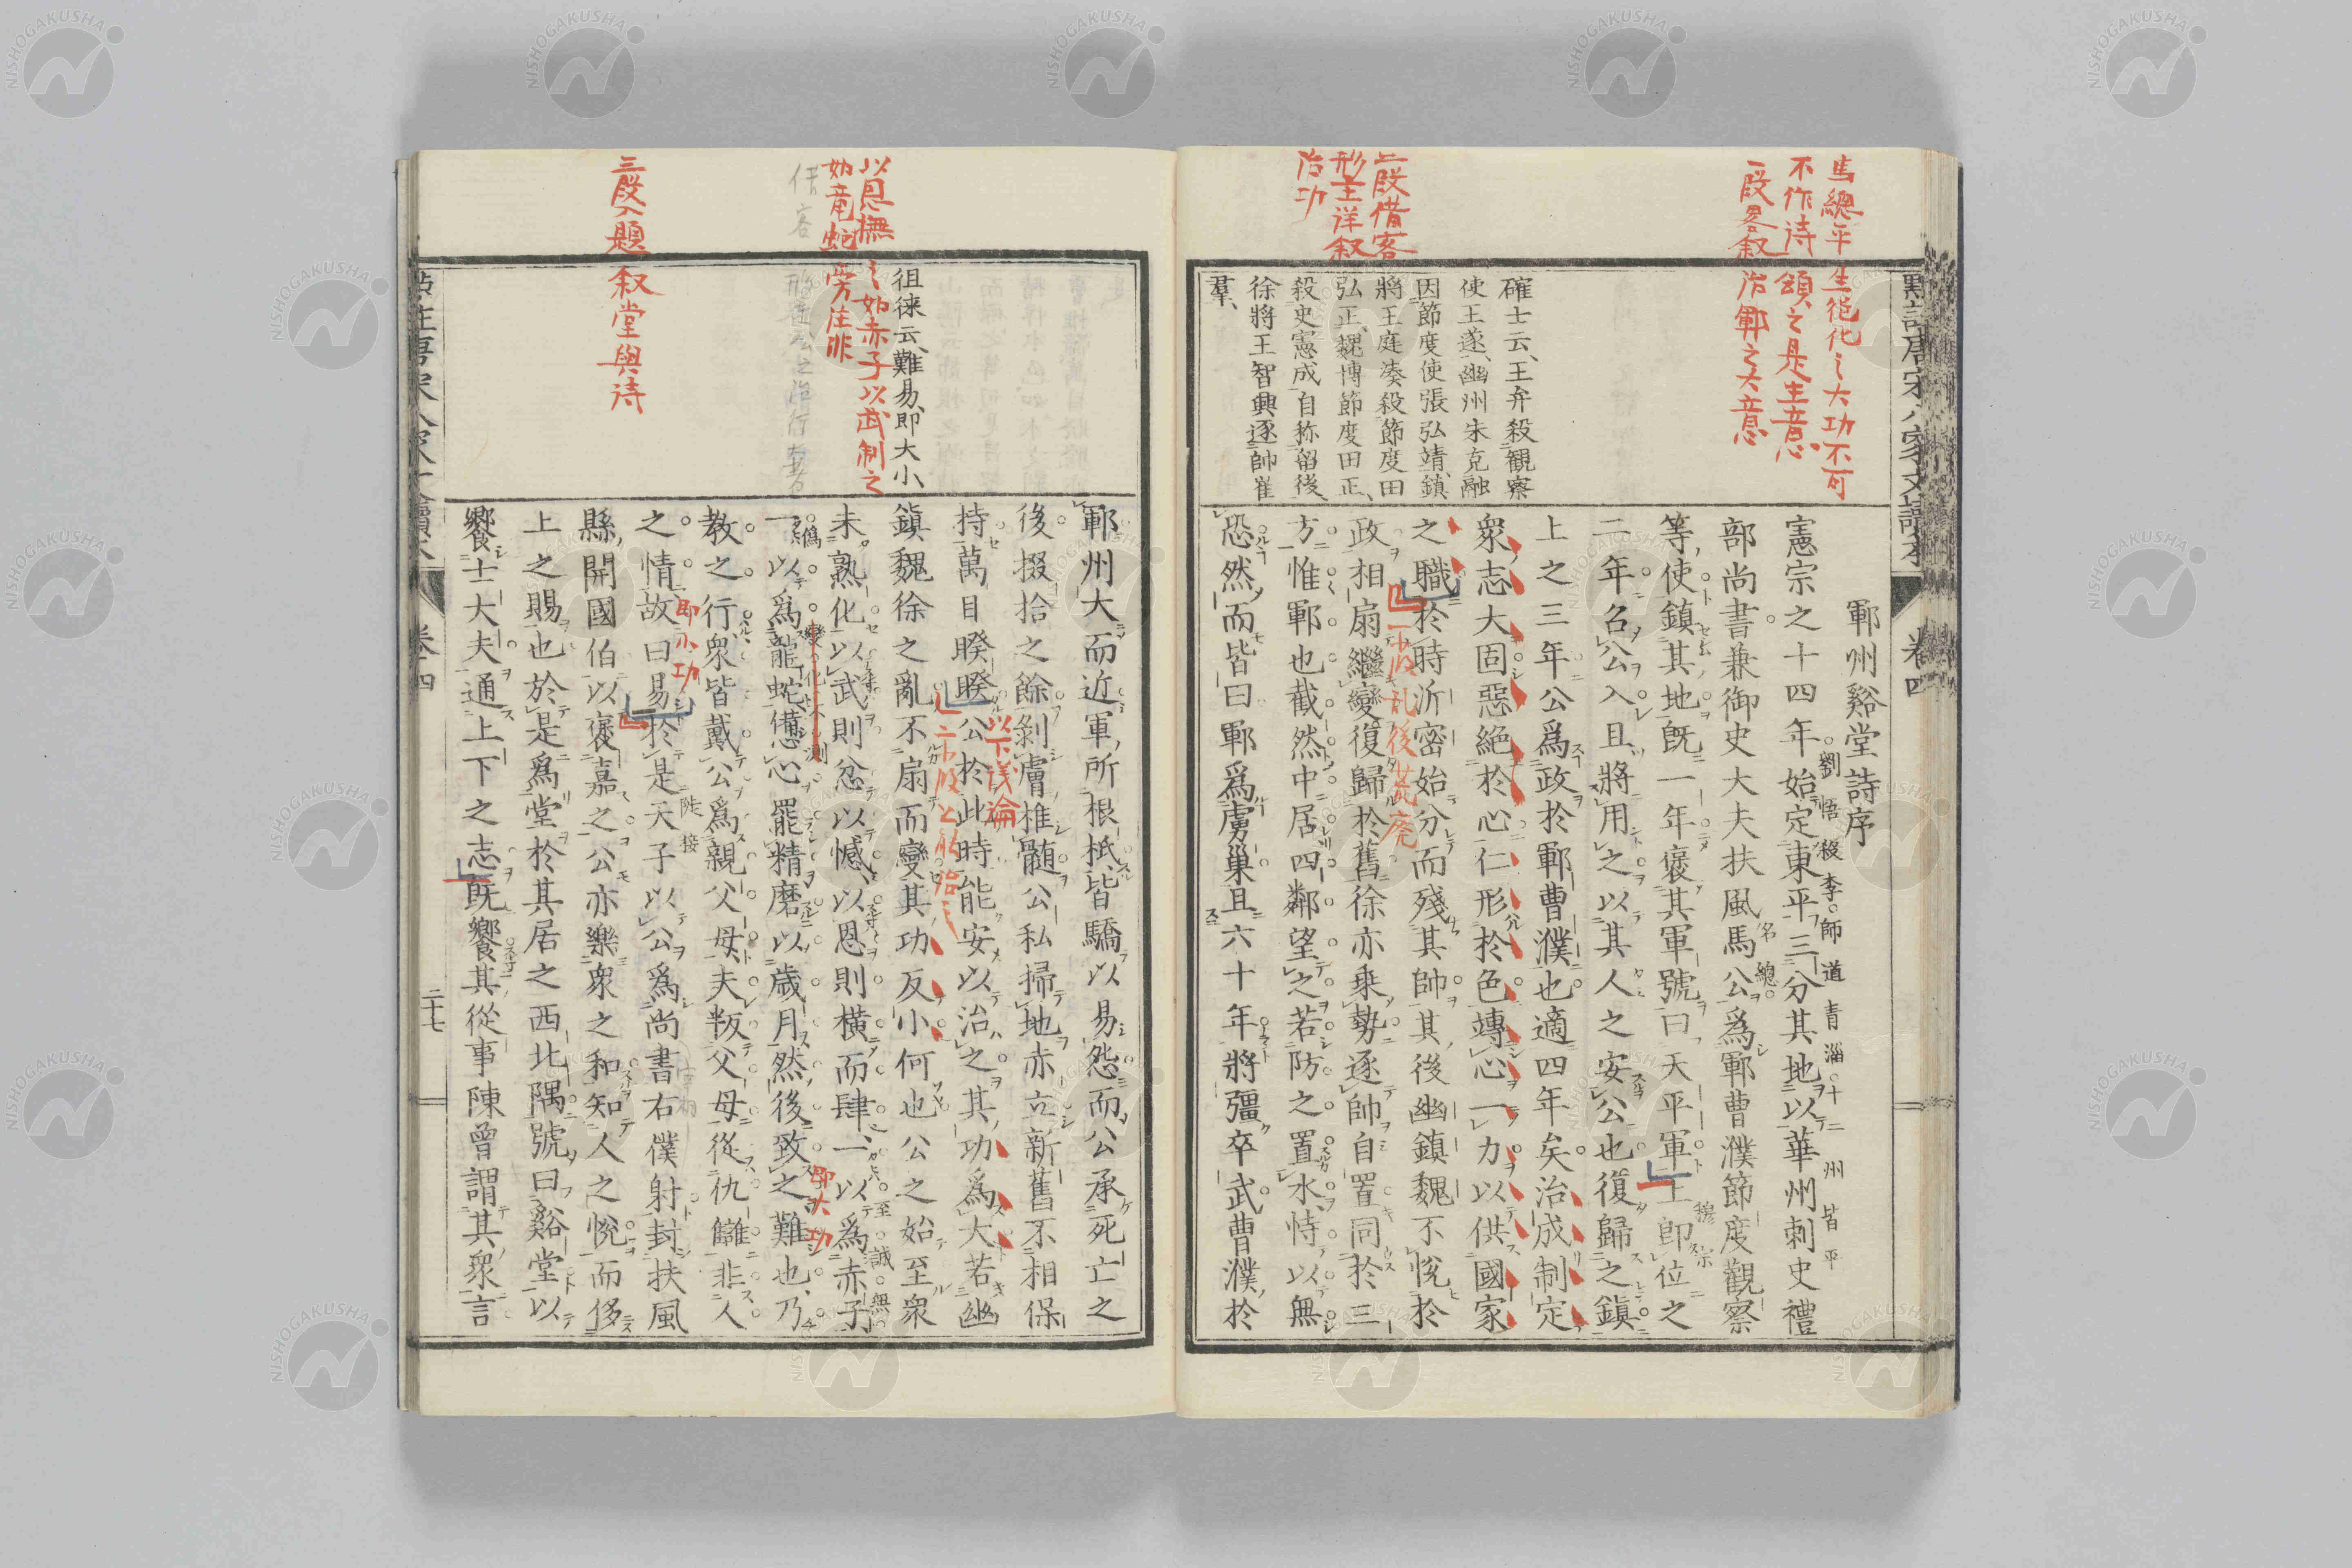 馬總平生能化之大功不可
不作詩頌之是主意
一段畧叙治鄆之大意
鄆州谿堂詩序
憲宗之十四年始定東平三分其地以華州刺史禮
劉悟殺李師道青淄十二州皆平
部尚書兼御史大夫扶風馬公爲鄆曹濮節度觀察
名總
等使鎮其地既一年褒其軍號曰天平軍上卽位之
穆宗
二年召公入且將用之以其人之安公也復歸之鎮
上之三年公爲政於鄆曹濮也適四年矣治成制定
衆志大固惡絕於心仁形於色竱心一力以供國家
之職於時沂密始分而殘其帥其後幽鎮魏不悅於
政相扇繼變復歸於舊徐亦乗勢逐帥自置同於三
方惟鄆也截然中居四鄰望之若防之置水恃以無
恐然而皆曰鄆爲虜巢且六十年將彊卒武曹濮於
二段借客
形主详叙
治功
確士云、王弁殺観察
使王遂、幽州朱克融
因節度使張弘靖、鎮
將王庭湊殺節度田
弘正、魏博節度田正、
殺史憲成自称留後、
徐將王智興逐帥崔
羣、
一小段乱後荒廃
點註唐宋八家文讀本
卷四
鄆州大而近軍所根柢皆驕以易怨而公承死亡之
後掇拾之餘剝膚椎髓公私掃地赤立新舊不相保
持萬目睽睽公於此時能安以治之其功爲大若幽
以下议論
鎮魏徐之亂不扇而變其功反小何也公之始至衆
未熟化以武則忿以憾以恩則橫而肆一以爲赤子
至誠無僞
一以爲龍蛇憊心罷精磨以歲月然後致之難也乃
變化不測
即大功
教之行衆皆戴公爲親父母夫叛父母從仇讎非人
之情故曰易於是天子以公爲尚書右僕射封扶風
即小功
陡接
縣開國伯以褒嘉之公亦樂衆之和知人之悅而侈
上之賜也於是爲堂於其居之西北隅號曰谿堂以
饗士大夫通上下之志既饗其從事陳曾謂其衆言
徂徠云、難易、即大小、
以恩撫之如赤子以武制之
如竜蛇 旁注非
借客
三段入題 叙堂與诗
二十七